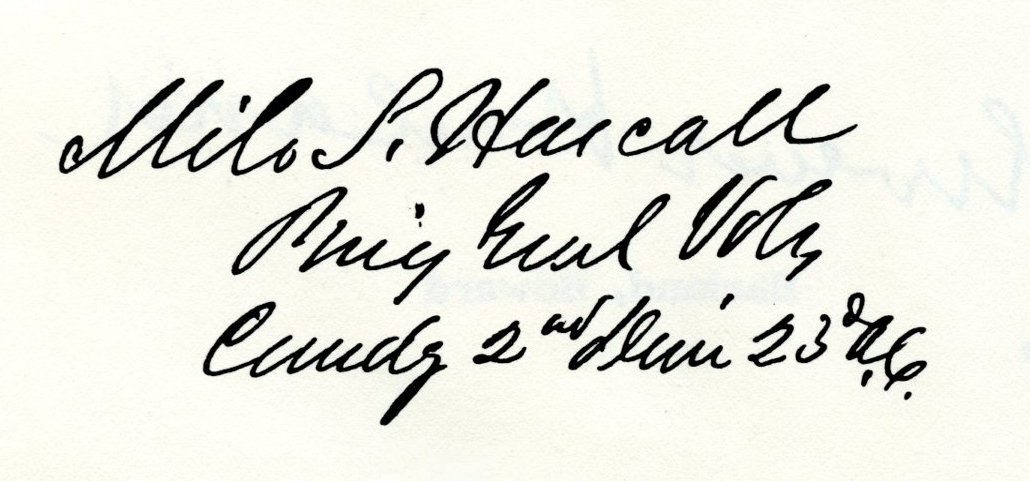 Milo S. Hascall
Brig Genl Vols
Comdg 2nd Divi 23d A.C.